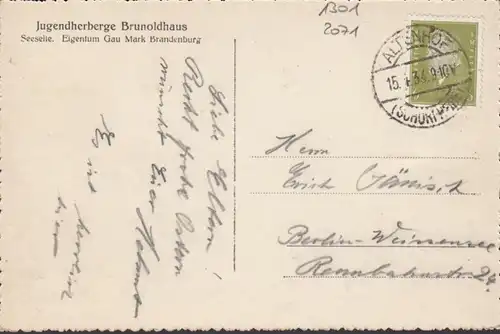 Jugendherberge Brunoldhaus
Seeseite. Eigentum Gau Mark Brandenburg
1301
2071
ALTENHOF
15.
9-10V
Liebe Eltern!
Recht frohe Ostern
wünscht Euer
Es ist
hier
Herrn
Erich
Berlin-Weissensee
Rennbahnstr. 24.